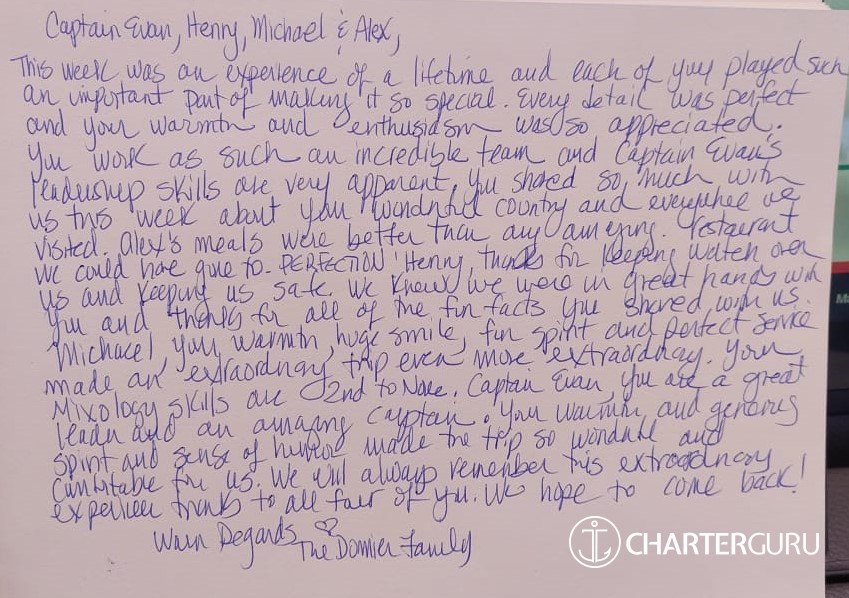 Captain Evan, Henry, Michael & Alex,
This week was an experience of a lifetime and each of you played such
an important part of making it so special. Every detail was perfect
and your warmth and enthusiasm was so appreciated.
You work as such an incredible team and Captain Evan's
leadership skills are very apparent. You shared so much with
us this week about your wonderful country and everywhere we
visited. Alex's meals were better than any amazing restaurant
we could have gone to. PERFECTION! Henry, thanks for keeping watch over
us and keeping us safe. We knew we were in great hands with
you and thanks for all of the fun facts you shared with us.
Michael, your warmth, huge smile, fun spirit and perfect service
made an extraordinary trip even more extraordinary. Your
Mixology skills are 2nd to None. Captain Evan, you are a great
leader and an amazing captain. Your warmth and generous
spirit and sense of humor made the trip so wonderful and
comfortable for us. We will always remember this extraordinary
experience thanks to all four of you. We hope to come back!
Warm Regards ♡
The Domier Family
CHARTERGURU